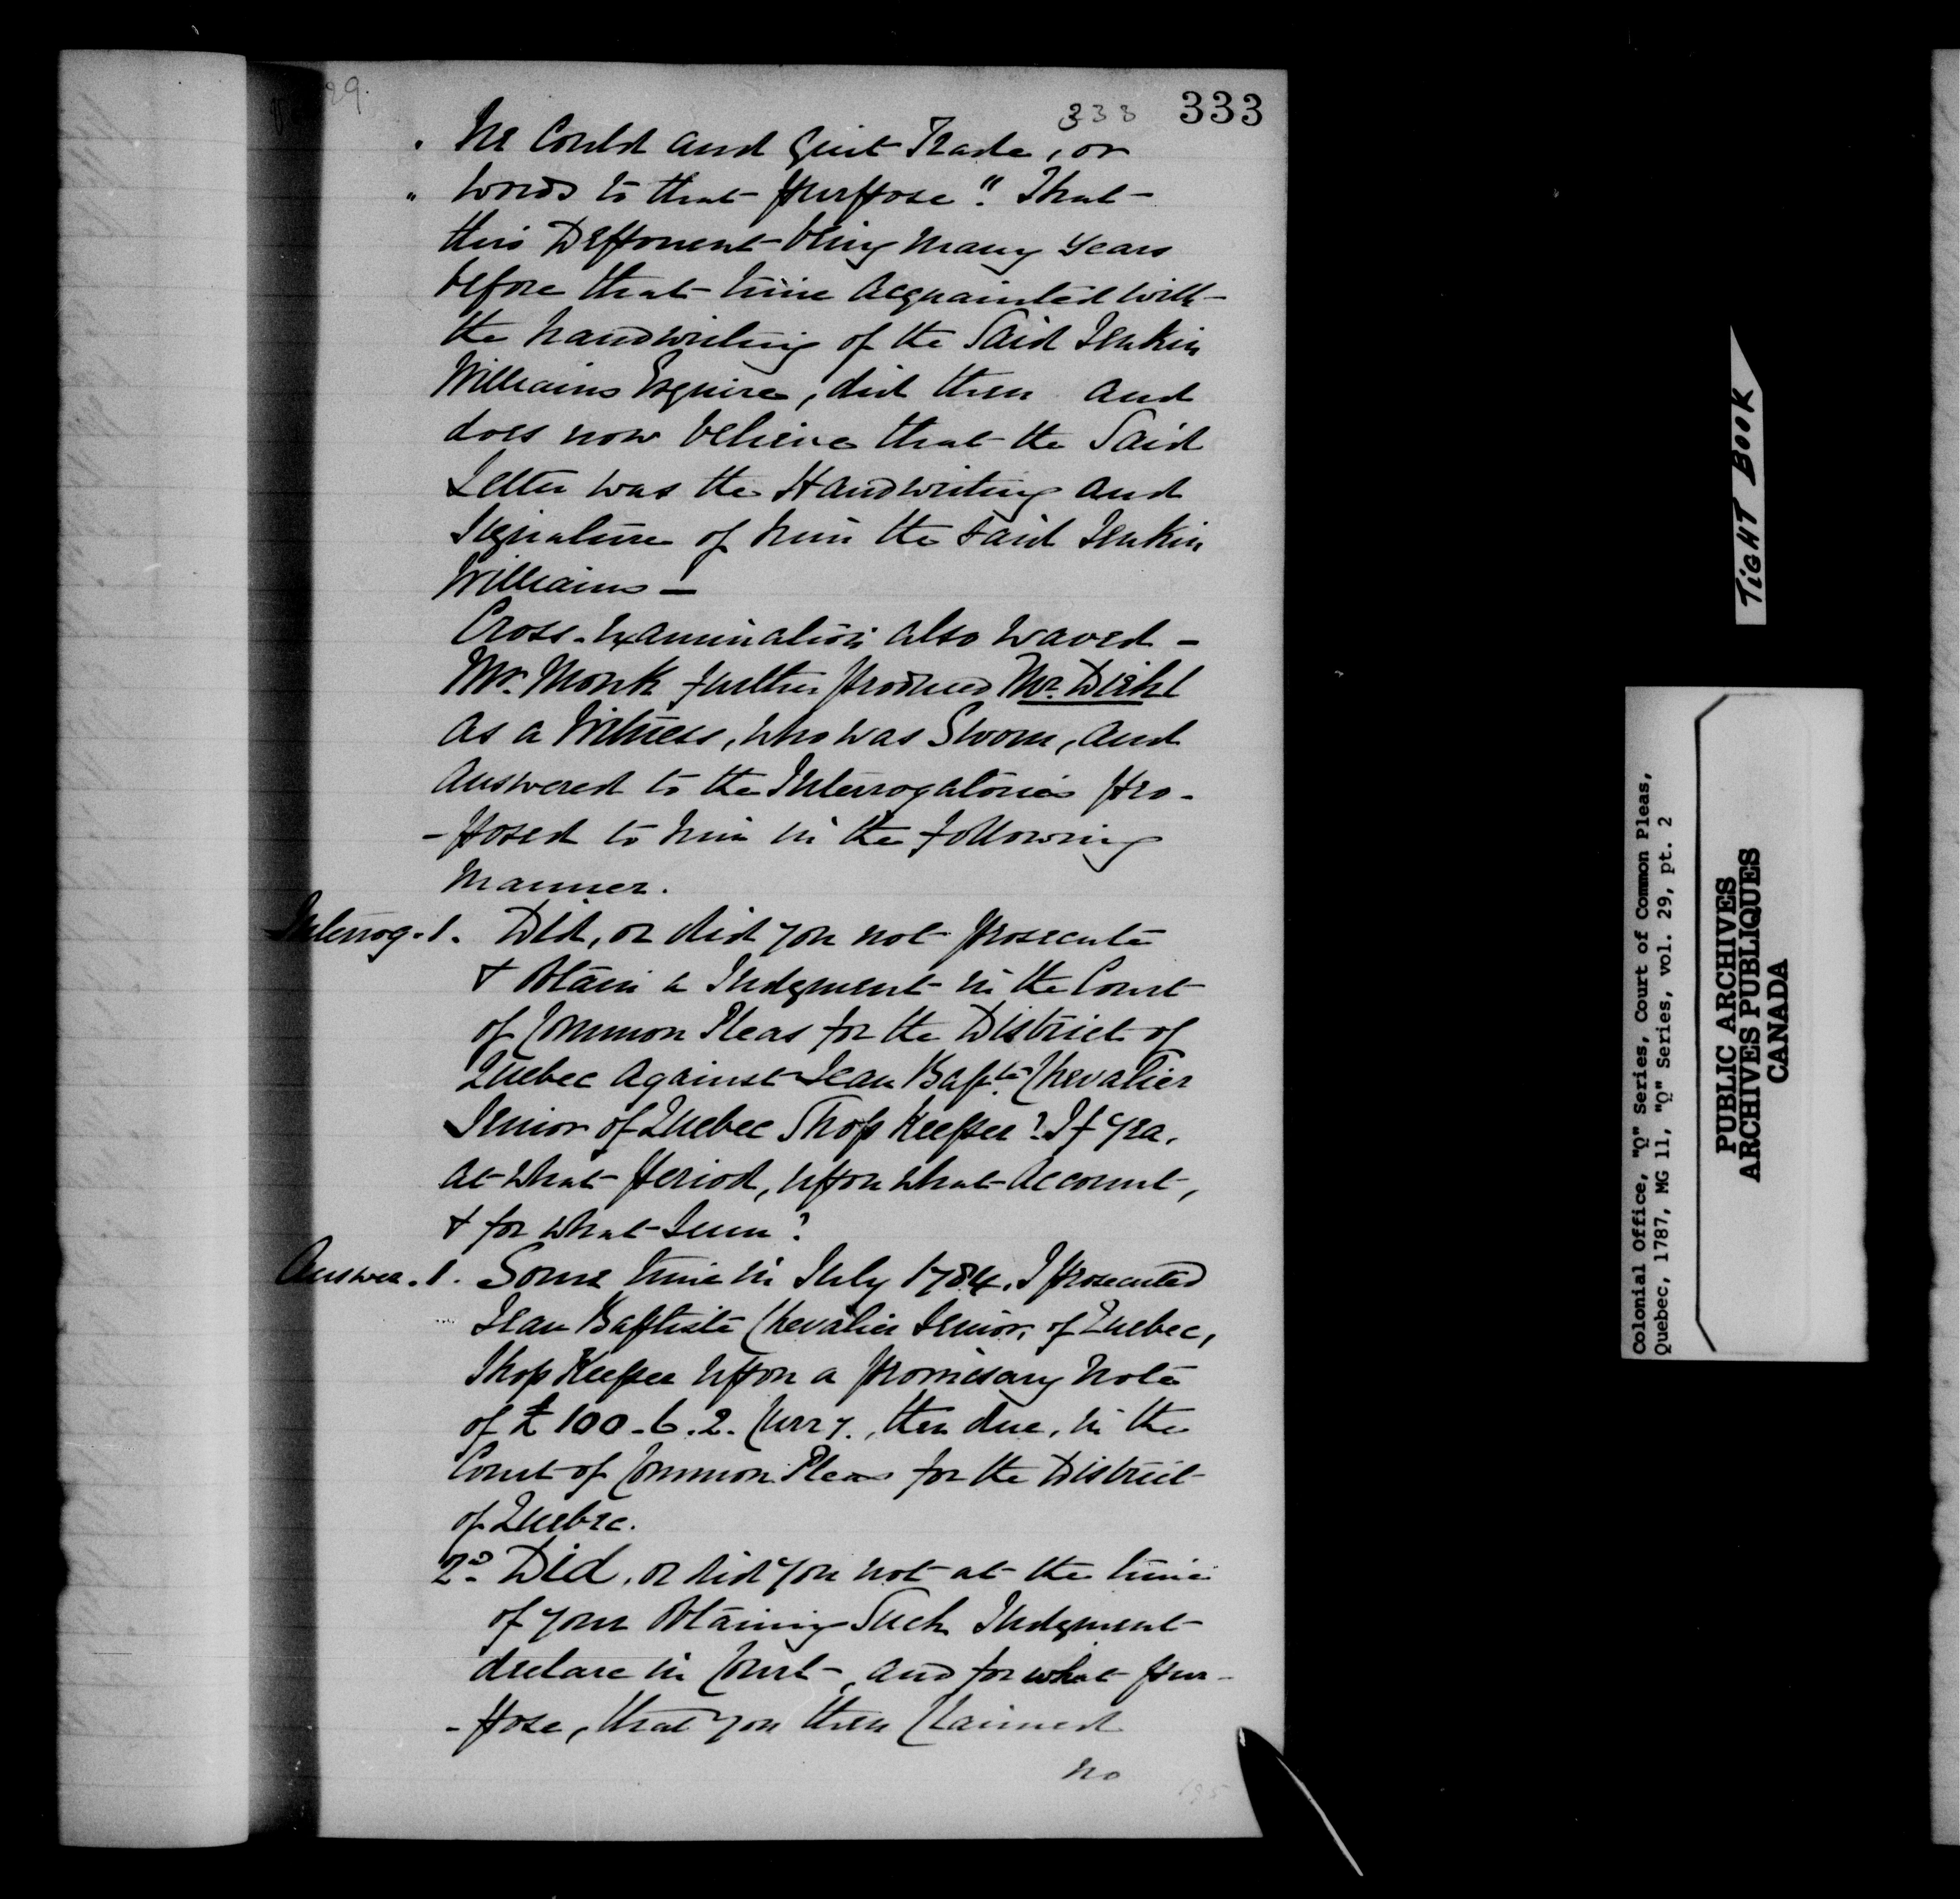 29.
333 333
" he Could and Quit Trade, or
" words to that purpose". That
this Deponent being many years
before that time acquainted with
the handwriting of the Said Jenkin
Williams Esquire, did then and
does now believe that the Said
Letter was the Handwriting and
Signature of him the said Jenkin
Williams —
Cross-Examination also waved -
Mr. Monk further produced Mr. Diehl
as a Witness, who was Sworn, and
answered to the Interrogatories pro-
-posed to him in the following
manner.
Interrog. 1. Did, or did you not prosecute
& obtain a Judgment in the Court
of Common Pleas for the District of
Quebec against Jean Bapte. Chevalier
Senior of Quebec Shop Keeper? If yea,
at what period, upon what account,
& for what Sum?
Answer. 1. Some time in July 1784, I prosecuted
Jean Baptiste Chevalier Senior, of Quebec,
Shop Keeper upon a promisary note
of £100.6.2. Curry., then due, in the
Court of Common Pleas for the District
of Quebec.
2d. Did, or did you not at the time
of your obtaining Such Judgment
declare in Court, and for what pur-
-pose, that you then Claimed
no
195
TiGHT BOOK
Colonial Office, "Q" Series, Court of Common Pleas,
Quebec, 1787, MG 11, "Q" Series, vol. 29, pt. 2
PUBLIC ARCHIVES
ARCHIVES PUBLIQUES
CANADA